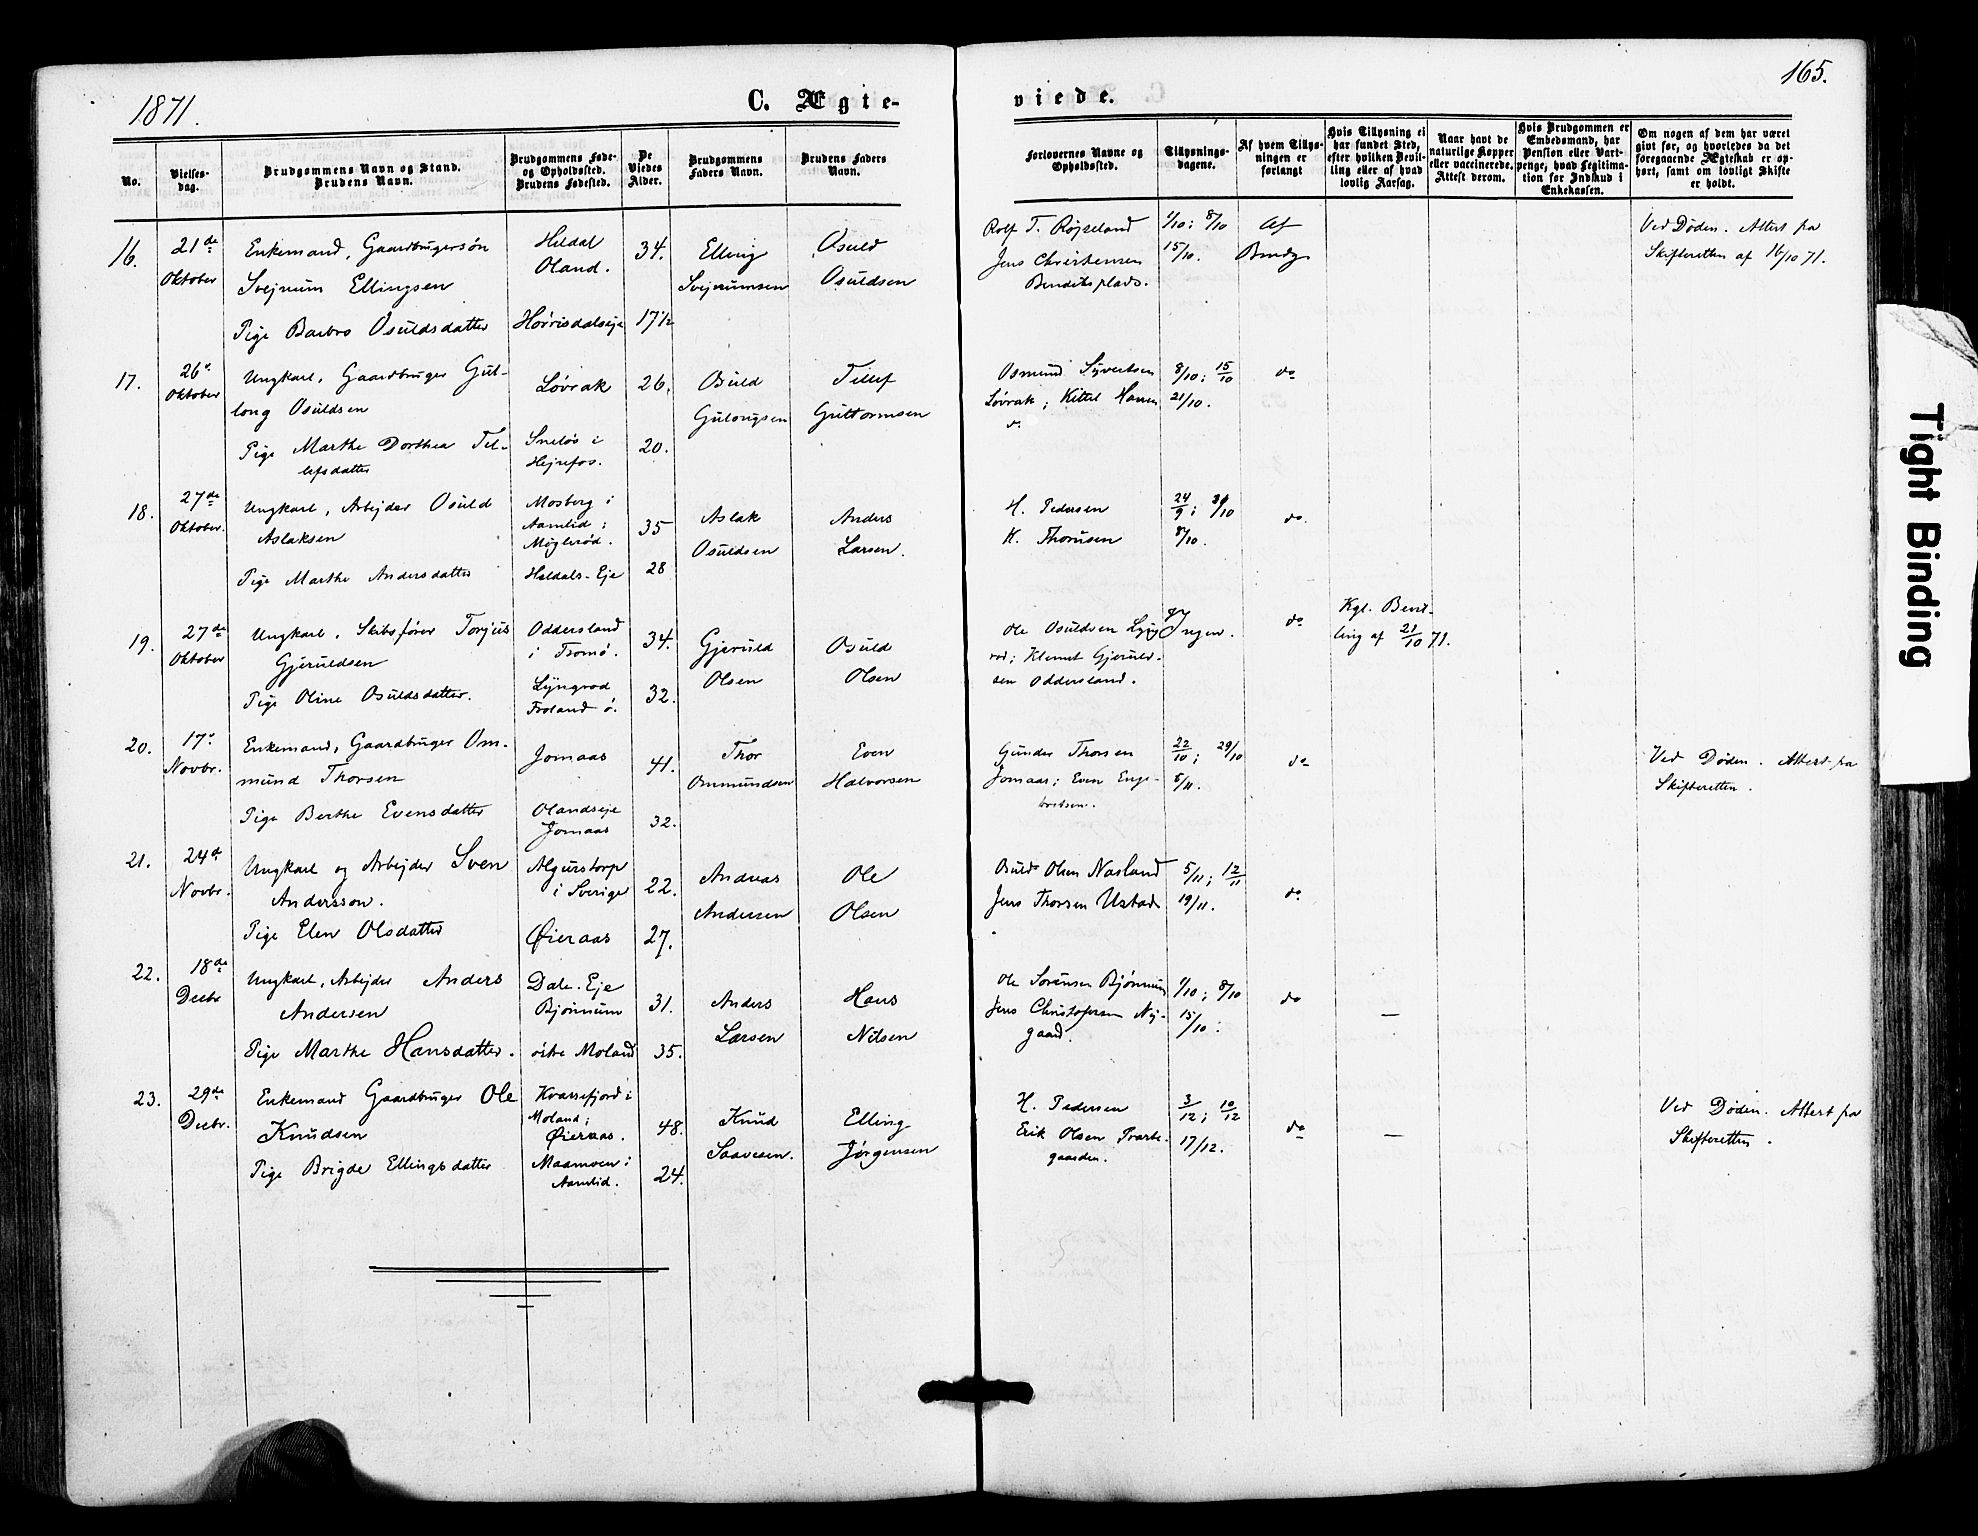 1871.
C. Ægte-
viede.
165.
No.
Vielses-
dag.
Brudgommens Navn og Stand.
Brudens Navn.
Brudgommens Føde-
og Opholdssted.
Brudens Fødested.
De
Viedes
Alder.
Brudgommens
Faders Navn.
Brudens Faders
Navn.
Forlovernes Navne og
Opholdssted.
Tillysnings-
dagene.
Af hvem Tillys-
ningen er
forlangt
Hvis Tillysning ei
har fundet Sted,
efter hvilken Bevil-
ling eller af hvad
lovlig Aarsag.
Naar havt de
naturlige Kopper
eller vaccinerede.
Attest derom.
Hvis Brudgommen er
Embedsmand, har
Pension eller Vart-
penge, hvad Legitima-
tion for Indskud i
Enkekassen.
Om nogen af dem har været
givt før, og hvorledes da det
foregaaende Ægteskab er op-
hørt, samt om lovligt Skifte
er holdt.
16.
21de
Oktober
Enkemand, Gaardbrugersøn
Svejnum Ellingsen
Pige Barbro Osuldsdatter
Hildal
Oland.
Hørrisdalseje
34.
17½
Elling
Svejnumsen
Osuld
Osuldsen
Rolf T. Røjseland
Jens Christensen
Benditsplads.
1/10; 8/10
15/10.
Af
Brudg.
Ved Døden. Attest fra
Skifteretten af 16/10 71.
17.
26de
Oktober
Ungkarl, Gaardbruger Gul-
long Osuldsen
Pige Marthe Dorthea Til-
lefsdatter
Løvrak
Sneløs i
Hejrefos.
26.
20.
Osuld
Gulongsen
Tellef
Guttormsen
Osmund Syvertsen
Løvrak; Kittel Hansen
do
8/10; 15/10
21/10.
do
18.
27de
Oktober.
Ungkarl, Arbejder Osuld
Aslaksen
Pige Marthe Andersdatter
Mosberg i
Aamlid;
Møglerød.
Heldals-Eje
35
28
Aslak
Osuldsen
Anders
Larsen.
H. Pedersen
K. Thorusen
24/9; 1/10
8/10.
do.
19.
27de
Oktober
Ungkarl, Skibsfører Torjus
Gjeruldsen
Pige Oline Osuldsdatter.
Oddersland
i Tromø.
Lyngrod
Froland ø.
34.
32.
Gjeruld
Olsen
Osuld
Olsen
Ole Osuldsen Lyng-
rod; Klemet Gjeruld-
sen Oddersland.
Ingen.
do
Kgl. Bevil-
ling af 21/10 71.
20.
17de
Novbr.
Enkemand, Gaardbruger Om-
mund Thorsen
Pige Berthe Evensdatter
Jomaas
Olandseje
Jomaas
41.
32.
Thor
Ommundsen
Even
Halvorsen
Gunder Thorsen
Jomaas; Even Enge-
bretsen.
22/10; 29/10
5/11.
do
Ved Døden. Attest fra
Skifteretten.
21.
24de
Novbr.
Ungkarl og Arbejder Sven
Andersson.
Pige Elen Olsdatter
Algurstorp
i Sverige
Øieraas
22.
27.
Andreas
Andersen
Ole
Olsen
Osuld Olsen Nasland
Jens Thorsen Ustad
5/11; 12/11
19/11.
do
22.
18de
Decbr
Ungkarl, Arbejder Anders
Andersen
Pige Marthe Hansdatter.
Dale-Eje
Bjønnum
østre Moland
31.
35.
Anders
Larsen
Hans
Nilsen
Ole Sørensen Bjønnum
Jens Christofersen Ny-
gaard.
1/10; 8/10
15/10.
do
—
23.
29de
Decbr.
Enkemand Gaardbruger Ole
Knudsen
Pige Brigde Ellingsdatter
Kvassefjord i
Moland;
Øieraas.
Maamoen i
Aamlid.
48.
24.
Knud
Saavesen.
Elling
Jørgensen
H. Pedersen
Erik Olsen
gaarden.
3/12; 10/12
17/12.
do
—
Ved Døden. Attest fra
Skifteretten.
Tight Binding